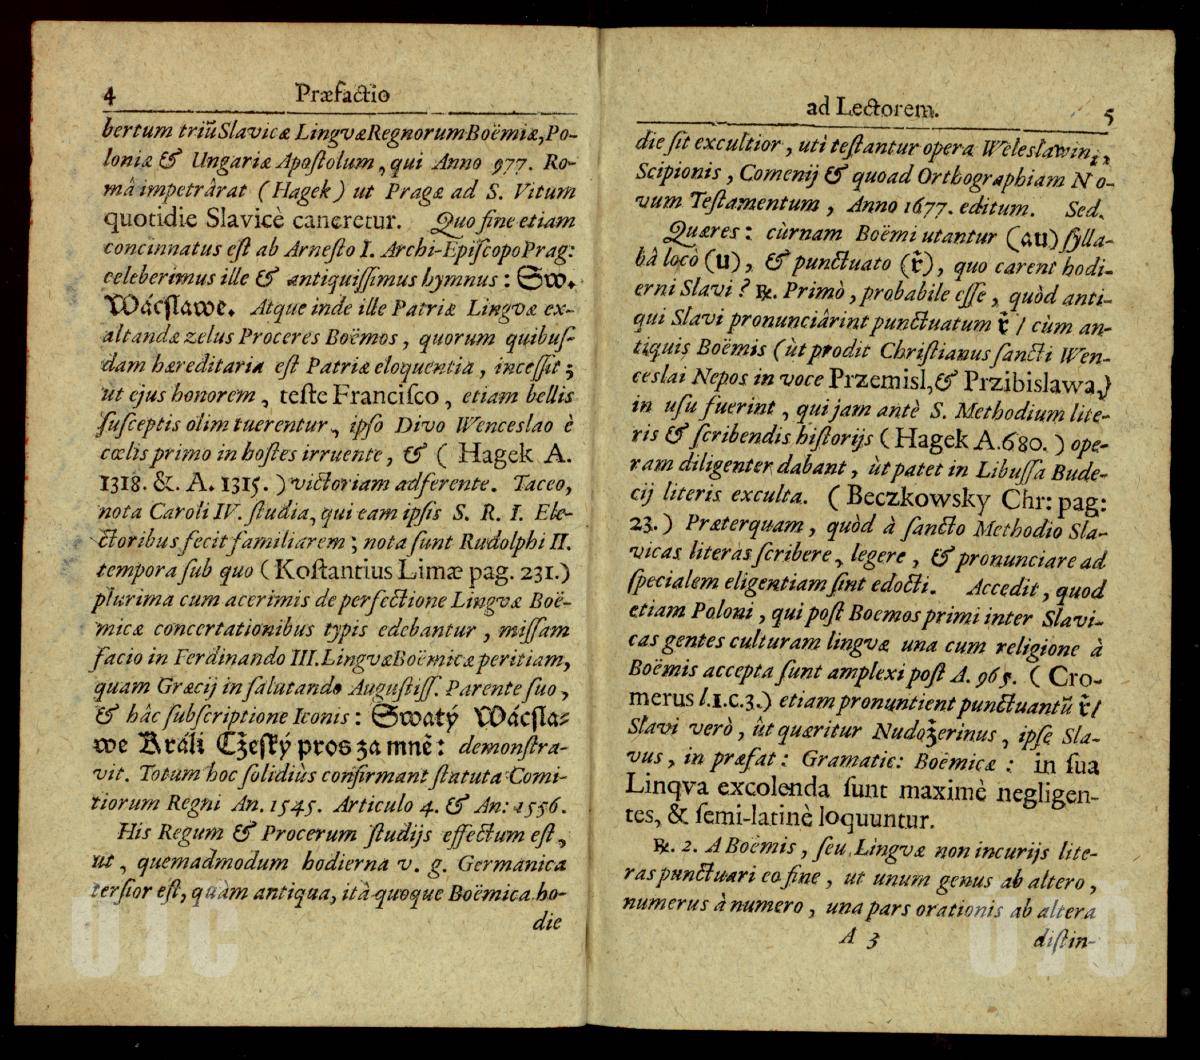 4 Præfactio
bertum triũ Slavicæ Lingvæ Regnorum Boëmiæ, Po-
loniæ & Ungariæ Apoſtolum, qui Anno 977. Ro-
mâ impetrârat (Hagek) ut Pragæ ad S. Vitum
quotidie Slavicè caneretur. Quo fine etiam
concinnatus eſt ab Arneſto I. Archi-Epiſcopo Prag:
celeberimus ille & antiquiſſimus hymnus: Sw.
Wácſlawe. Atque inde ille Patriæ Lingvæ ex-
altandæ zelus Proceres Boëmos, quorum quibuſ-
dam hæreditaria eſt Patriæ eloquentia, inceſſit;
ut ejus honorem, teſte Franciſco, etiam bellis
ſuſceptis olim tuerentur, ipſo Divo Wenceslao è
cœlis primo in hoſtes irruente, & ( Hagek A.
1318. &. A. 1315. ) victoriam adferente. Taceo,
nota Caroli IV. ſtudia, qui eam ipſis S. R. I. Ele-
ctoribus fecit familiarem; nota ſunt Rudolphi II.
tempora ſub quo (Koſtantius Limæ pag. 231.)
plurima cum acerimis de perfectione Lingvæ Boë-
micæ concertationibus typis edebantur, miſſam
facio in Ferdinando III. Lingvæ Boëmicæ peritiam,
quam Græcij in ſalutando Auguſtiſſ. Parente ſuo,
& hâc ſubſcriptione Iconis: Swatý Wácſla=
we Králi Cžeſký pros za mně: demonſtra-
vit. Totum hoc ſolidiùs confirmant ſtatuta Comi-
tiorum Regni An. 1545. Articulo 4. & An: 1556.
His Regum & Procerum ſtudijs effectum eſt,
ut, quemadmodum hodierna v. g. Germanica
terſior eſt, quàm antiqua, ità quoque Boëmica ho-
die
ad Lectorem. 5
die ſit excultior, uti teſtantur opera Weleslawin,,
Scipionis, Comenij & quoad Orthographiam No-
vum Teſtamentum, Anno 1677. editum. Sed.
Quæres: cùrnam Boëmi utantur (au) ſylla-
bâ locò (u), & punctuato (ř), quo carent hodi-
erni Slavi? ℞. Primò, probabile eſſe, quòd anti-
qui Slavi pronunciârint punctuatum ř / cùm an-
tiquis Boëmis (ùt prodit Chriſtianus ſancti Wen-
ceslai Nepos in voce Przemisl, & Przibislawa,)
in uſu fuerint, qui jam antè S. Methodium lite-
ris & ſcribendis hiſtorijs (Hagek A. 680. ) ope-
ram diligenter dabant, ùt patet in Libuſſa Bude-
cij literis exculta. ( Beczkowsky Chr: pag:
23. ) Præterquam, quòd à ſancto Methodio Sla-
vicas literas ſcribere, legere, & pronunciare ad
ſpecialem eligentiam ſint edocti. Accedit, quod
etiam Poloni, qui poſt Boemos primi inter Slavi-
cas gentes culturam lingvæ una cum religione à
Boëmis accepta ſunt amplexi poſt A. 965. ( Cro-
merus l. 1. c. 3.) etiam pronuntient punctuantũ ř /
Slavi verò, ût quæritur Nudožerinus, ipſe Sla-
vus, in præfat: Gramatic: Boëmicæ: in ſua
Linqva excolenda ſunt maximè negligen-
tes, & ſemi-latinè loquuntur.
℞. 2. A Boëmis, ſeu Lingvæ non incurijs lite-
ras punctuari eo fine, ut unum genus ab altero,
numerus à numero, una pars orationis ab altera
A 3 diſtin-